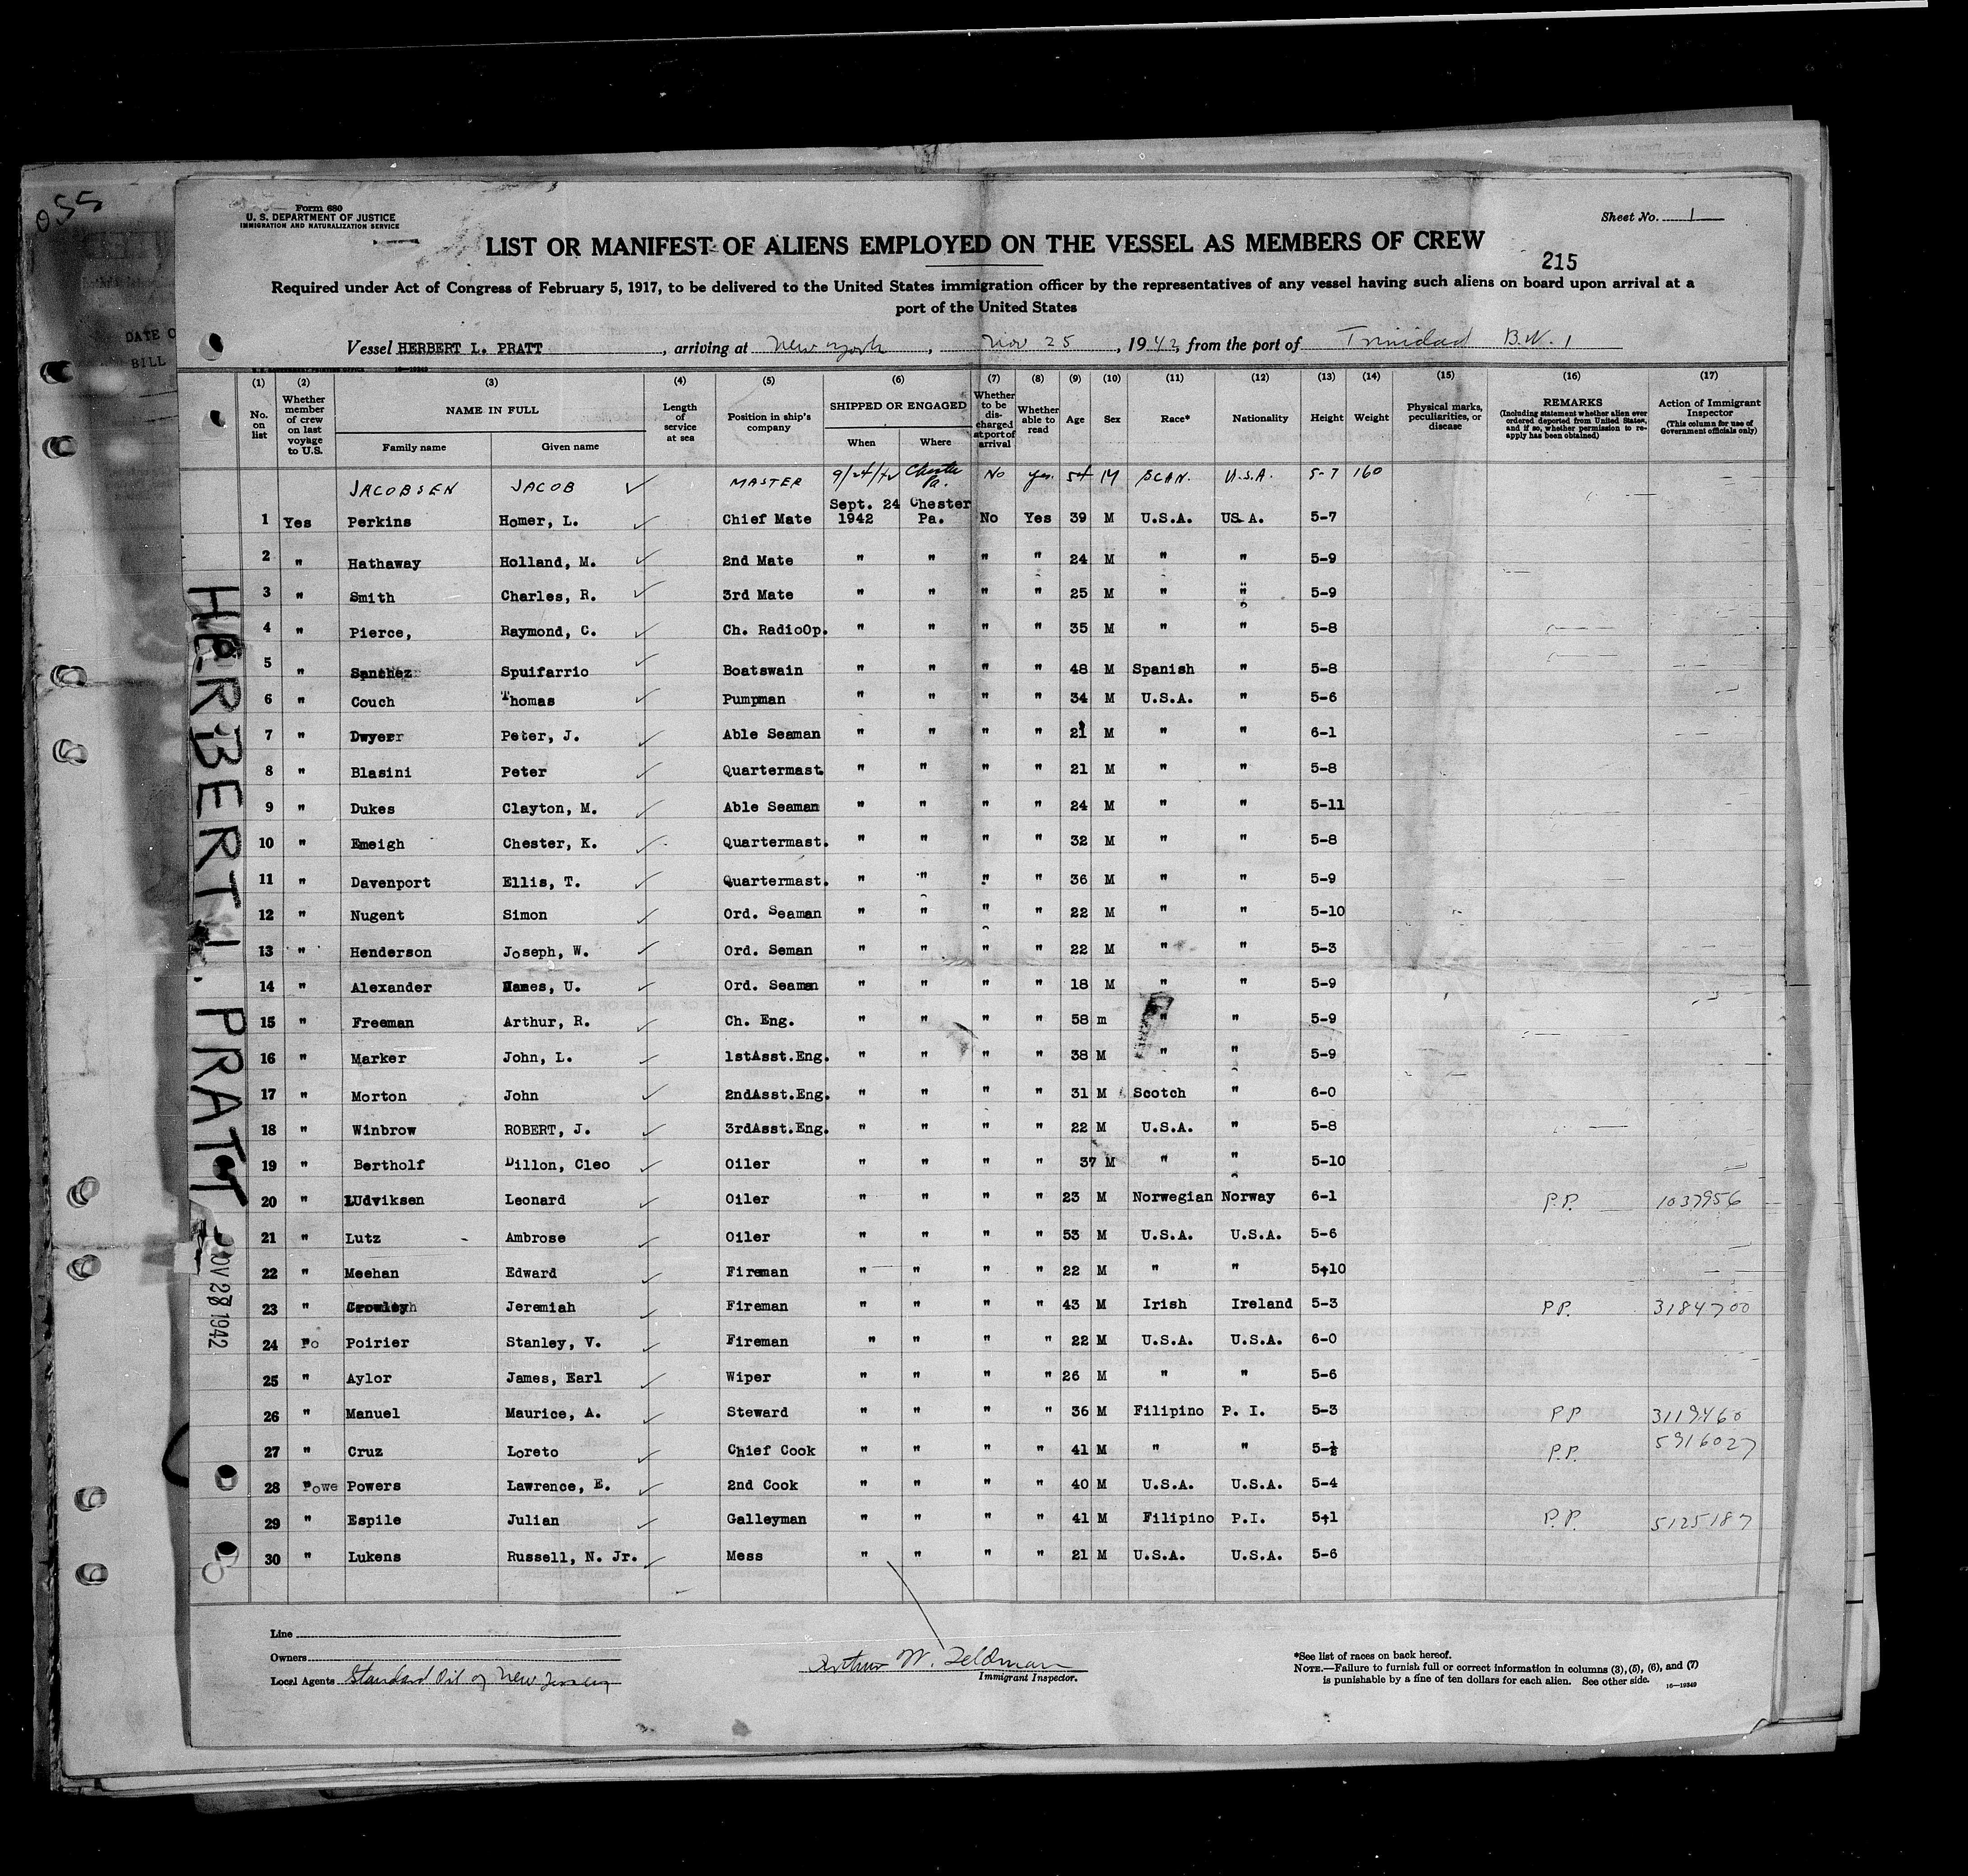 055
Form 680
U. S. DEPARTMENT OF JUSTICE
IMMIGRATION AND NATURALIZATION SERVICE
Sheet No. 1
LIST OR MANIFEST OF ALIENS EMPLOYED ON THE VESSEL AS MEMBERS OF CREW
215
Required under Act of Congress of February 5, 1917, to be delivered to the United States immigration officer by the representatives of any vessel having such aliens on board upon arrival at a
port of the United States
DATE O
BILL
Vessel HERBERT L. PRATT, arriving at New York, Nov 25, 1942, from the port of Trinidad B.W.I
(1) (2) (3) (4) (5) (6) (7) (8) (9) (10) (11) (12) (13) (14) (15) (16) (17)
No. on list
Whether member of crew on last voyage to U.S.
NAME IN FULL
Family name Given name
Length of service at sea
Position in ship's company
SHIPPED OR ENGAGED
When Where
Whether to be discharged at port of arrival
Whether able to read
Age Sex Race* Nationality Height Weight
Physical marks, peculiarities, or disease
REMARKS
(Including statement whether alien ever ordered deported from United States, and if so, whether permission to reapply has been obtained)
Action of Immigrant Inspector
(This column for use of Government officials only)
JACOBSEN JACOB ✓ MASTER 9/24/42 Chester Pa. No yes 54 M SCAN. U.S.A. 5-7 160
1 Yes Perkins Homer, L. ✓ Chief Mate Sept. 24 1942 Chester Pa. No Yes 39 M U.S.A. US A. 5-7
2 " Hathaway Holland, M. ✓ 2nd Mate " " " " 24 M " " 5-9
3 " Smith Charles, R. ✓ 3rd Mate " " " " 25 M " " 5-9
4 " Pierce, Raymond, C. ✓ Ch. RadioOp. " " " " 35 M " " 5-8
5 " Sanchez Spuifarrio ✓ Boatswain " " " " 48 M Spanish " 5-8
6 " Couch Thomas ✓ Pumpman " " " " 34 M U.S.A. " 5-6
7 " Dwyer Peter, J. ✓ Able Seaman " " " " 21 M " " 6-1
8 " Blasini Peter ✓ Quartermast. " " " " 21 M " " 5-8
9 " Dukes Clayton, M. ✓ Able Seaman " " " " 24 M " " 5-11
10 " Emeigh Chester, K. ✓ Quartermast. " " " " 32 M " " 5-8
11 " Davenport Ellis, T. ✓ Quartermast. " " " " 36 M " " 5-9
12 " Nugent Simon ✓ Ord. Seaman " " " " 22 M " " 5-10
13 " Henderson Joseph, W. ✓ Ord. Seman " " " " 22 M " " 5-3
14 " Alexander U. ✓ Ord. Seaman " " " " 18 M " " 5-9
15 " Freeman Arthur, R. ✓ Ch. Eng. " " " " 58 m " " 5-9
16 " Marker John, L. ✓ 1stAsst.Eng. " " " " 38 M " " 5-9
17 " Morton John ✓ 2ndAsst.Eng. " " " " 31 M Scotch " 6-0
18 " Winbrow ROBERT, J. ✓ 3rdAsst.Eng. " " " " 22 M U.S.A. " 5-8
19 " Bertholf Dillon, Cleo ✓ Oiler " " " " 37 M " " 5-10
20 " LUdviksen Leonard ✓ Oiler " " " " 23 M Norwegian Norway 6-1 P.P. 1037956
21 " Lutz Ambrose ✓ Oiler " " " " 53 M U.S.A. U.S.A. 5-6
22 " Meehan Edward ✓ Fireman " " " " 22 M " " 5-10
23 " Crowley Jeremiah ✓ Fireman " " " " 43 M Irish Ireland 5-3 PP. 3184700
24 Po Poirier Stanley, V. ✓ Fireman " " " " 22 M U.S.A. U.S.A. 6-0
25 " Aylor James, Earl ✓ Wiper " " " " 26 M " " 5-6
26 " Manuel Maurice, A. ✓ Steward " " " " 36 M Filipino P. I. 5-3 PP 3119460
27 " Cruz Loreto ✓ Chief Cook " " " " 41 M " " 5-½ P.P. 5916027
28 Powe Powers Lawrence, E. ✓ 2nd Cook " " " " 40 M U.S.A. U.S.A. 5-4
29 " Espile Julian ✓ Galleyman " " " " 41 M Filipino P.I. 5-1 P.P. 5125187
30 " Lukens Russell, N. Jr. ✓ Mess " " " " 21 M U.S.A. U.S.A. 5-6
HERBERT L. PRATT
NOV 27 1942
Line
Owners
Local Agents Standard Oil of New Jersey
Arthur W. Feldman
Immigrant Inspector.
*See list of races on back hereof.
NOTE.—Failure to furnish full or correct information in columns (3), (5), (6), and (7)
is punishable by a fine of ten dollars for each alien. See other side.
16—19349